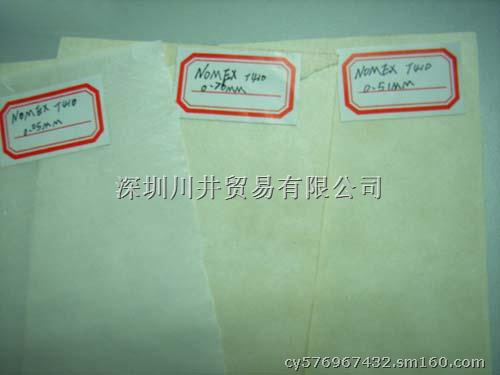 NOMEX T410
0.05MM
NOMEX T410
0.76MM
NOMEX T410
0.51MM
深圳川井贸易有限公司
cy576967432.sm160.com